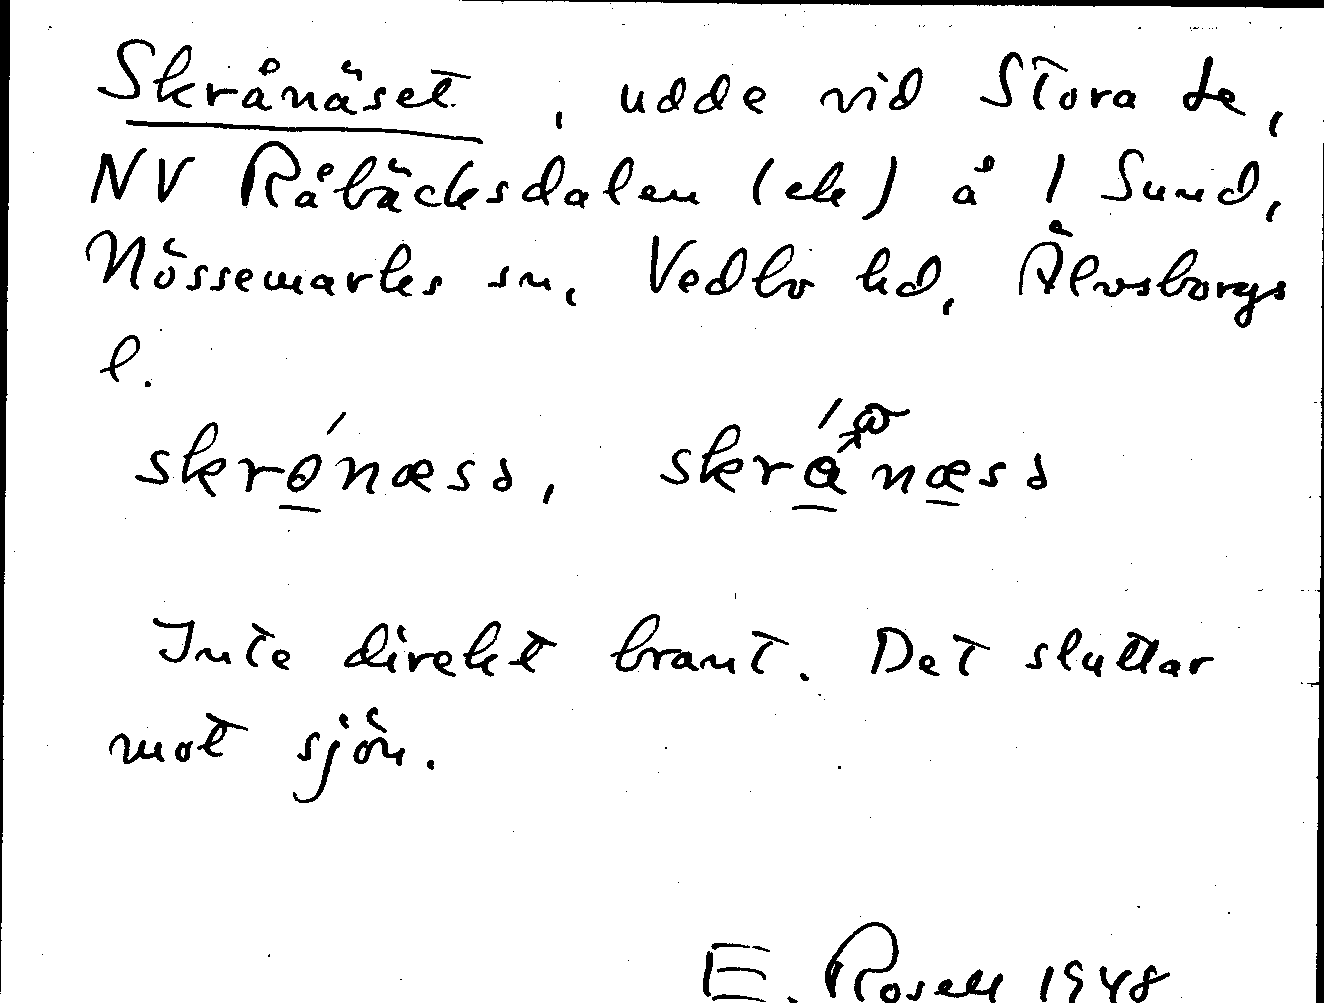 Skrånäset, udde vid Stora Le,
NV Råbäcksdalen (ek) å 1 Sund,
Nössemarks sn, Vedbo hd, Älvsborgs
l.
skrónæsə, skránæsə
Inte direkt brant. Det sluttar
mot sjön.
E. Rosell 1948